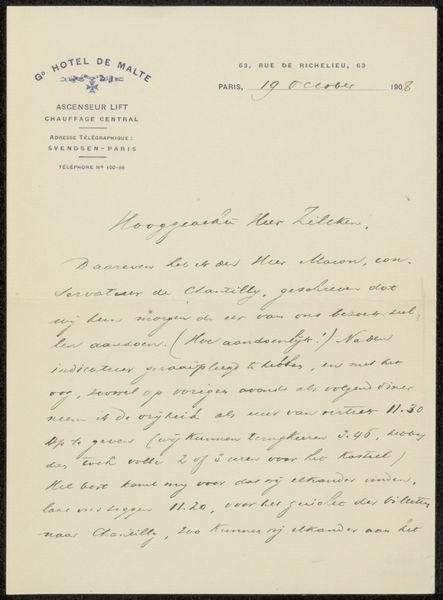 Gd HOTEL DE MALTE
ASCENSEUR LIFT
CHAUFFAGE CENTRAL
ADRESSE TÉLÉGRAPHIQUE:
SVENDSEN-PARIS
TÉLÉPHONE No 100-86
63, RUE DE RICHELIEU, 63
PARIS, 19 October 1908
Hooggeachte Heer Zilcken,
Daareven heb ik den Heer Macon, con-
servateur de Chantilly, geschreven dat
wij hem morgen de eer van ons bezoek zul-
len aandoen. (Hoe aandoenlijk!) Na den
indicateur geraadpleegd te hebben, en met het
oog, zoowel op vorigen avond als volgend diner
neem ik de vrijheid als uur van vertrek 11.30
op te geven (wij kunnen terugkeeren 3.46,
dus toch volle 2 of 3 uren voor het Kasteel)
Het best komt my voor dat wij elkander vinden,
laat ons zeggen 11.20, voor het guichet der billetten
naar Chantilly, zoo kunnen wij elkander aan het